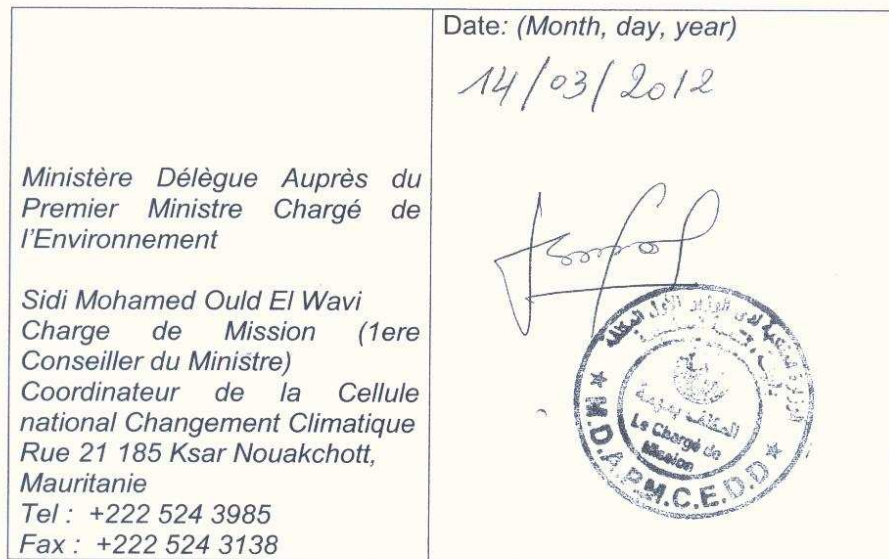 Ministère Délègue Auprès du
Premier Ministre Chargé de
l'Environnement
Sidi Mohamed Ould El Wavi
Charge de Mission (1ere
Conseiller du Ministre)
Coordinateur de la Cellule
national Changement Climatique
Rue 21 185 Ksar Nouakchott,
Mauritanie
Tel : +222 524 3985
Fax : +222 524 3138
Date: (Month, day, year)
14/03/2012
الوزارة المنتدبة لدى الوزير الأول المكلفة
المكلف بمهمة
Le Chargé de
Mission
* M.D.A.P.M.C.E.D.D *